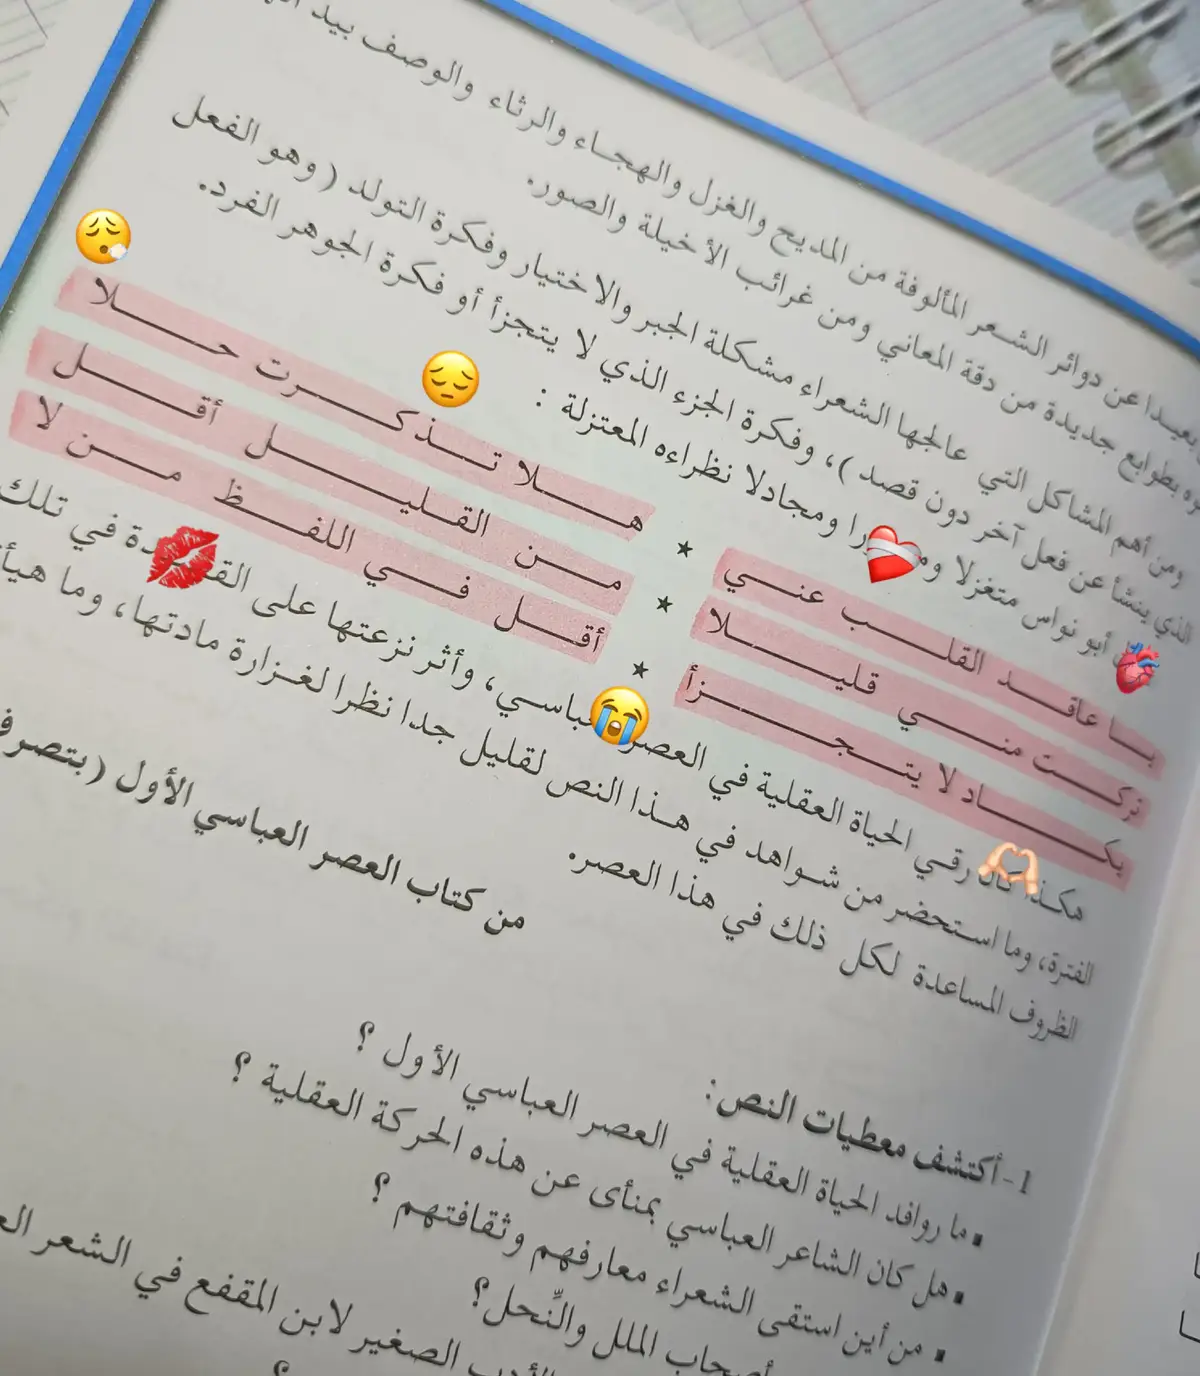 بعيدا عن دوائر الشعر المألوفة من المديح والغزل والهجاء والرثاء والوصف بيد
بطوابع جديدة من دقة المعاني ومن غرائب الأخيلة والصور.
ومن أهم المشاكل التي عالجها الشعراء مشكلة الجبر والاختيار وفكرة التولد (وهو الفعل
الذي ينشأ عن فعل آخر دون قصد)، وفكرة الجزء الذي لا يتجزأ أو فكرة الجوهر الفرد.
أبو نواس متغزلا ومجادلا نظراءه المعتزلة :
يا عاقد القلب عني ★ هلا تذكرت حلا
تركت مني قليلا ★ من القليل أقل
يكاد لا يتجزأ ★ أقل في اللفظ من لا
هكذا كان رقي الحياة العقلية في العصر العباسي، وأثر نزعتها على القصيدة في تلك
الفترة، وما استحضر من شواهد في هذا النص لقليل جدا نظرا لغزارة مادتها، وما هيأ
الظروف المساعدة لكل ذلك في هذا العصر.
من كتاب العصر العباسي الأول (بتصرف
1- أكتشف معطيات النص:
▪ ما روافد الحياة العقلية في العصر العباسي الأول ؟
▪ هل كان الشاعر العباسي بمنأى عن هذه الحركة العقلية ؟
▪ من أين استقى الشعراء معارفهم وثقافتهم ؟
أصحاب الملل والنِّحل؟
الأدب الصغير لابن المقفع في الشعر
؟